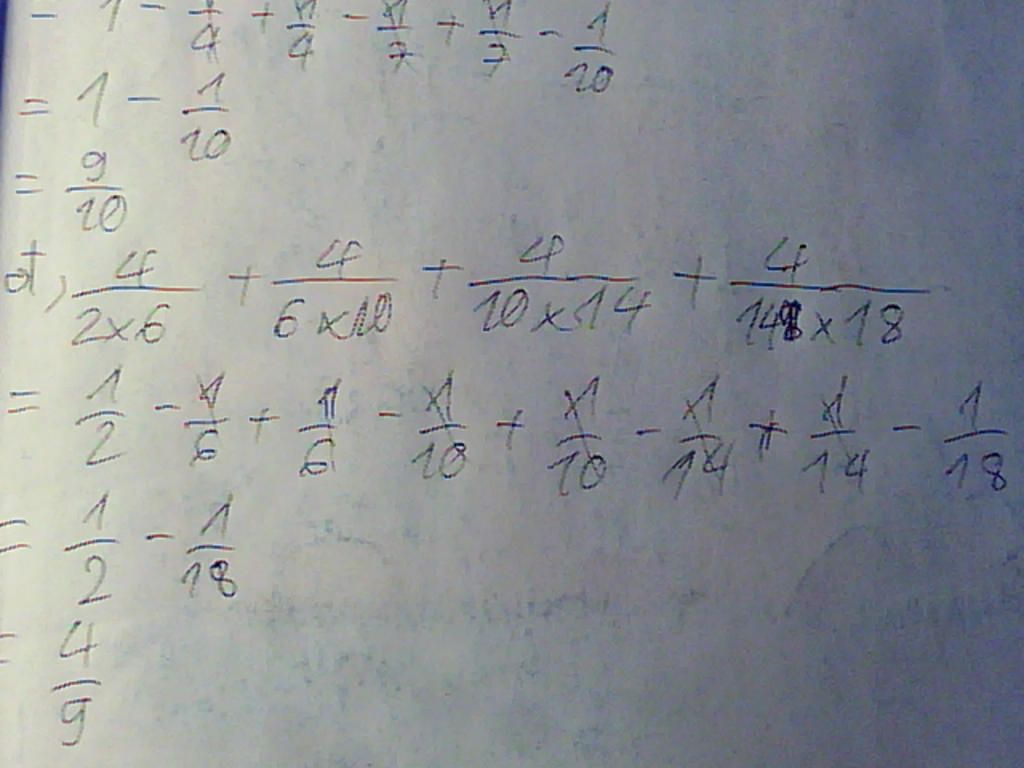 = 1 - 1/4 + 1/4 - 1/7 + 1/7 - 1/10
= 1 - 1/10
= 9/10
d, 4/(2x6) + 4/(6x10) + 4/(10x14) + 4/(14x18)
= 1/2 - 1/6 + 1/6 - 1/10 + 1/10 - 1/14 + 1/14 - 1/18
= 1/2 - 1/18
= 4/9